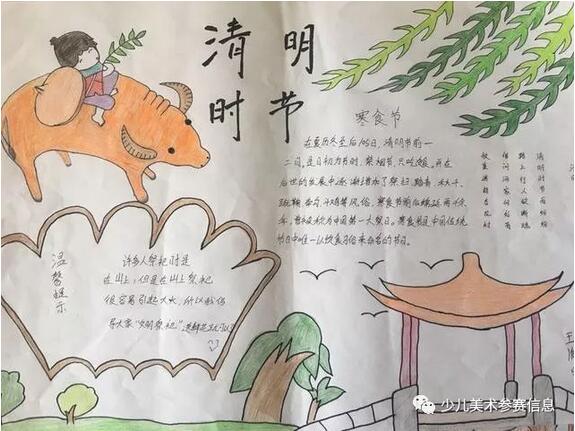 清明
时节
寒食节
在夏历冬至后105日,清明节前一
二日,是日初为节时,禁烟节,只吃冷食,并在
后世的发展中逐渐增加了祭扫、踏青、秋千、
蹴鞠、斗鸡等风俗,寒食节前后绵延两千余
年,曾被称为中国第一大祭日。寒食节是中国传统
节日中唯一以饮食习俗来命名的节日。
清明时节雨纷纷
路上行人欲断魂
借问酒家何处有
牧童遥指杏花村
温馨提示
许多人祭祀时是
在山上,但是在山上祭祀
很容易引起火灾,所以我倡
导大家“文明祭祀”
少儿美术参赛信息